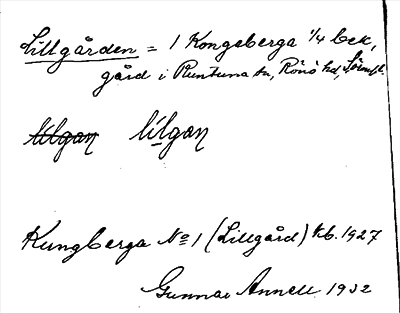 Lillgården = 1 Kongsberga 1/4 bek,
gård i Runtuna sn, Rönö hd, Sörmpl.
lilgaɲ lìlgaɲ
Kungberga No 1 (Lillgård) kb. 1927
Gunnar Annell 1932